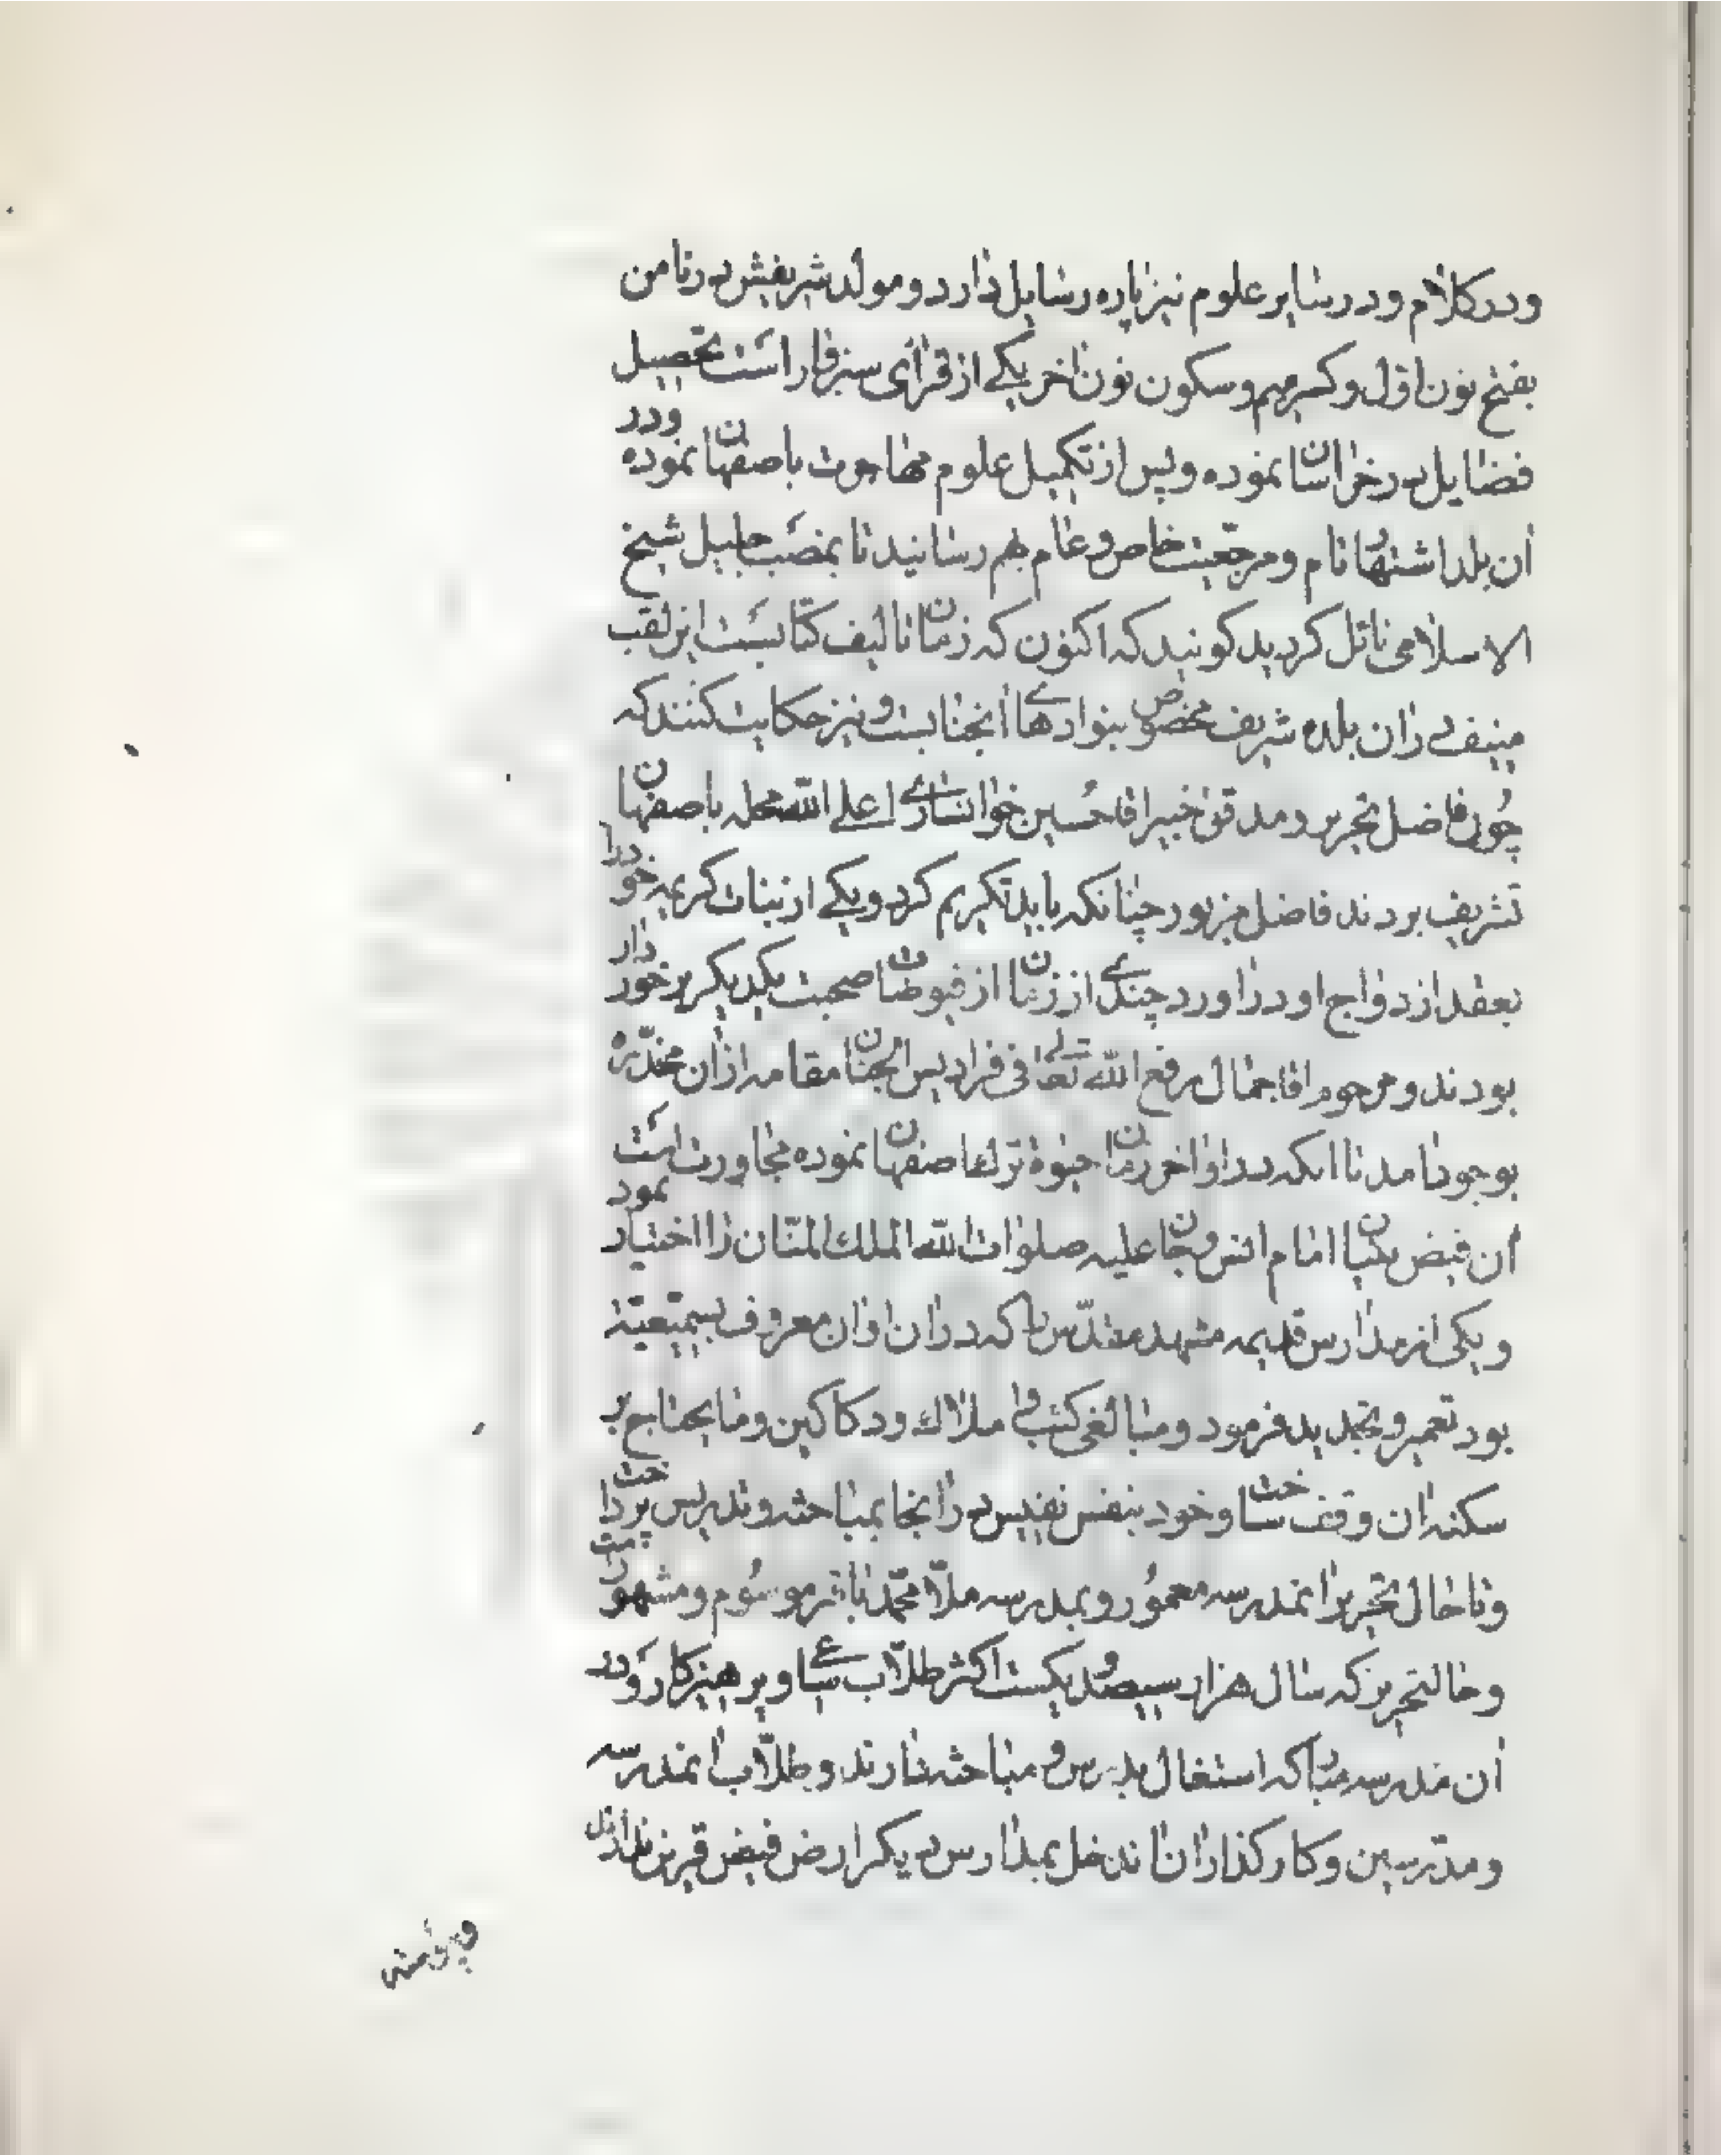 ودر کلام ودر سایر علوم نیز پاره رسایل دارد و مولد شریفش در نامن
بفتح نون اوّل وکسر میم وسکون نون اخر یکی از قرای سبزوار است تحصیل
فضایل در خراسان نموده وپس از تکمیل علوم مهاجرت باصفهان نموده ودر
آن بلد اشتهار تام ومرجعیت خاص وعام بهم رسانید تا بمنصب جلیل شیخ
الاسلامی نائل کردید کویند که اکنون که زمان تالیف کتابست این لقب
منیف در ان بلده شریف مخصوص بنوادهای آنجنابست ونیز حکایت کنند که
چون فاضل نحریر ومدقق خبیر اقا حسین خوانساری اعلی الله محله باصفهان
تشریف بردند فاضل مزبور چنانکه باید تکریم کرد ویکی از بنات کریمه خود را
بعقد ازدواج او در اورد چندی از زمان از فیوضات صحبت یکدیکر برخوردار
بودند ومرحوم اقا جمال رفع الله تعالی فی فرادیس الجنان مقامه از آن مخدّره
بوجود امد تا انکه در اواخر زمان حیوة ترک اصفهان نموده مجاورت است
آن فیض بنیان امام انس وجان علیه صلوات الله الملک المنّان را اختیار نمود
ویکی از مدارس قدیمه مشهد مقدّس را که در ان اوان معروف بسمیعیّه
بود تعمیر وتجدید فرمود ومبالغی کتب واملاک ودکاکین وما یحتاج بر
سکنه ان وقف ساخت وخود بنفس نفیس در انجا بمباحثه وتدریس پرداخت
وتا حال تحریر انمدرسه معمور وبمدرسه ملّا محمّد باقر موسوم ومشهور است
وحال تحریر که سال هزار وسیصد ویکست اکثر طلّاب ساعی وپرهیزکار ودر
آن مدرسه مبارکه اشتغال بدرس ومباحثه دارند وطلّاب انمدرسه
ومدّرسین وکارکذاران ان دخل بمدارس دیکر ارض فیض قرین ندارند